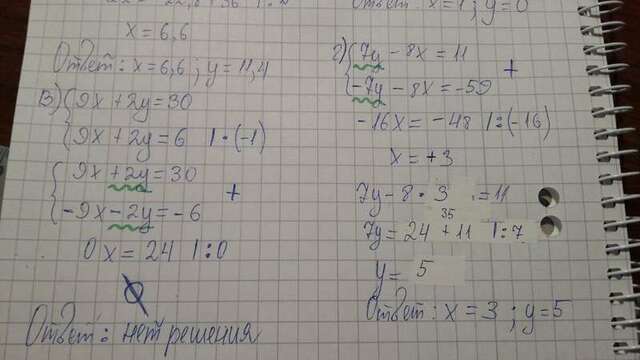 x = 6,6
Ответ: x = 6,6 ; y = 11,4
в) { 9x + 2y = 30
9x + 2y = 6 | · (-1)
{ 9x + 2y = 30
-9x - 2y = -6
+
0x = 24 | : 0
Ø
Ответ: нет решения
Ответ: x = 1 ; y = 0
г) { 7y - 8x = 11
-7y - 8x = -59
+
-16x = -48 | : (-16)
x = +3
7y - 8 · 3 = 11
35
7y = 24 + 11 | : 7
y = 5
Ответ: x = 3 ; y = 5